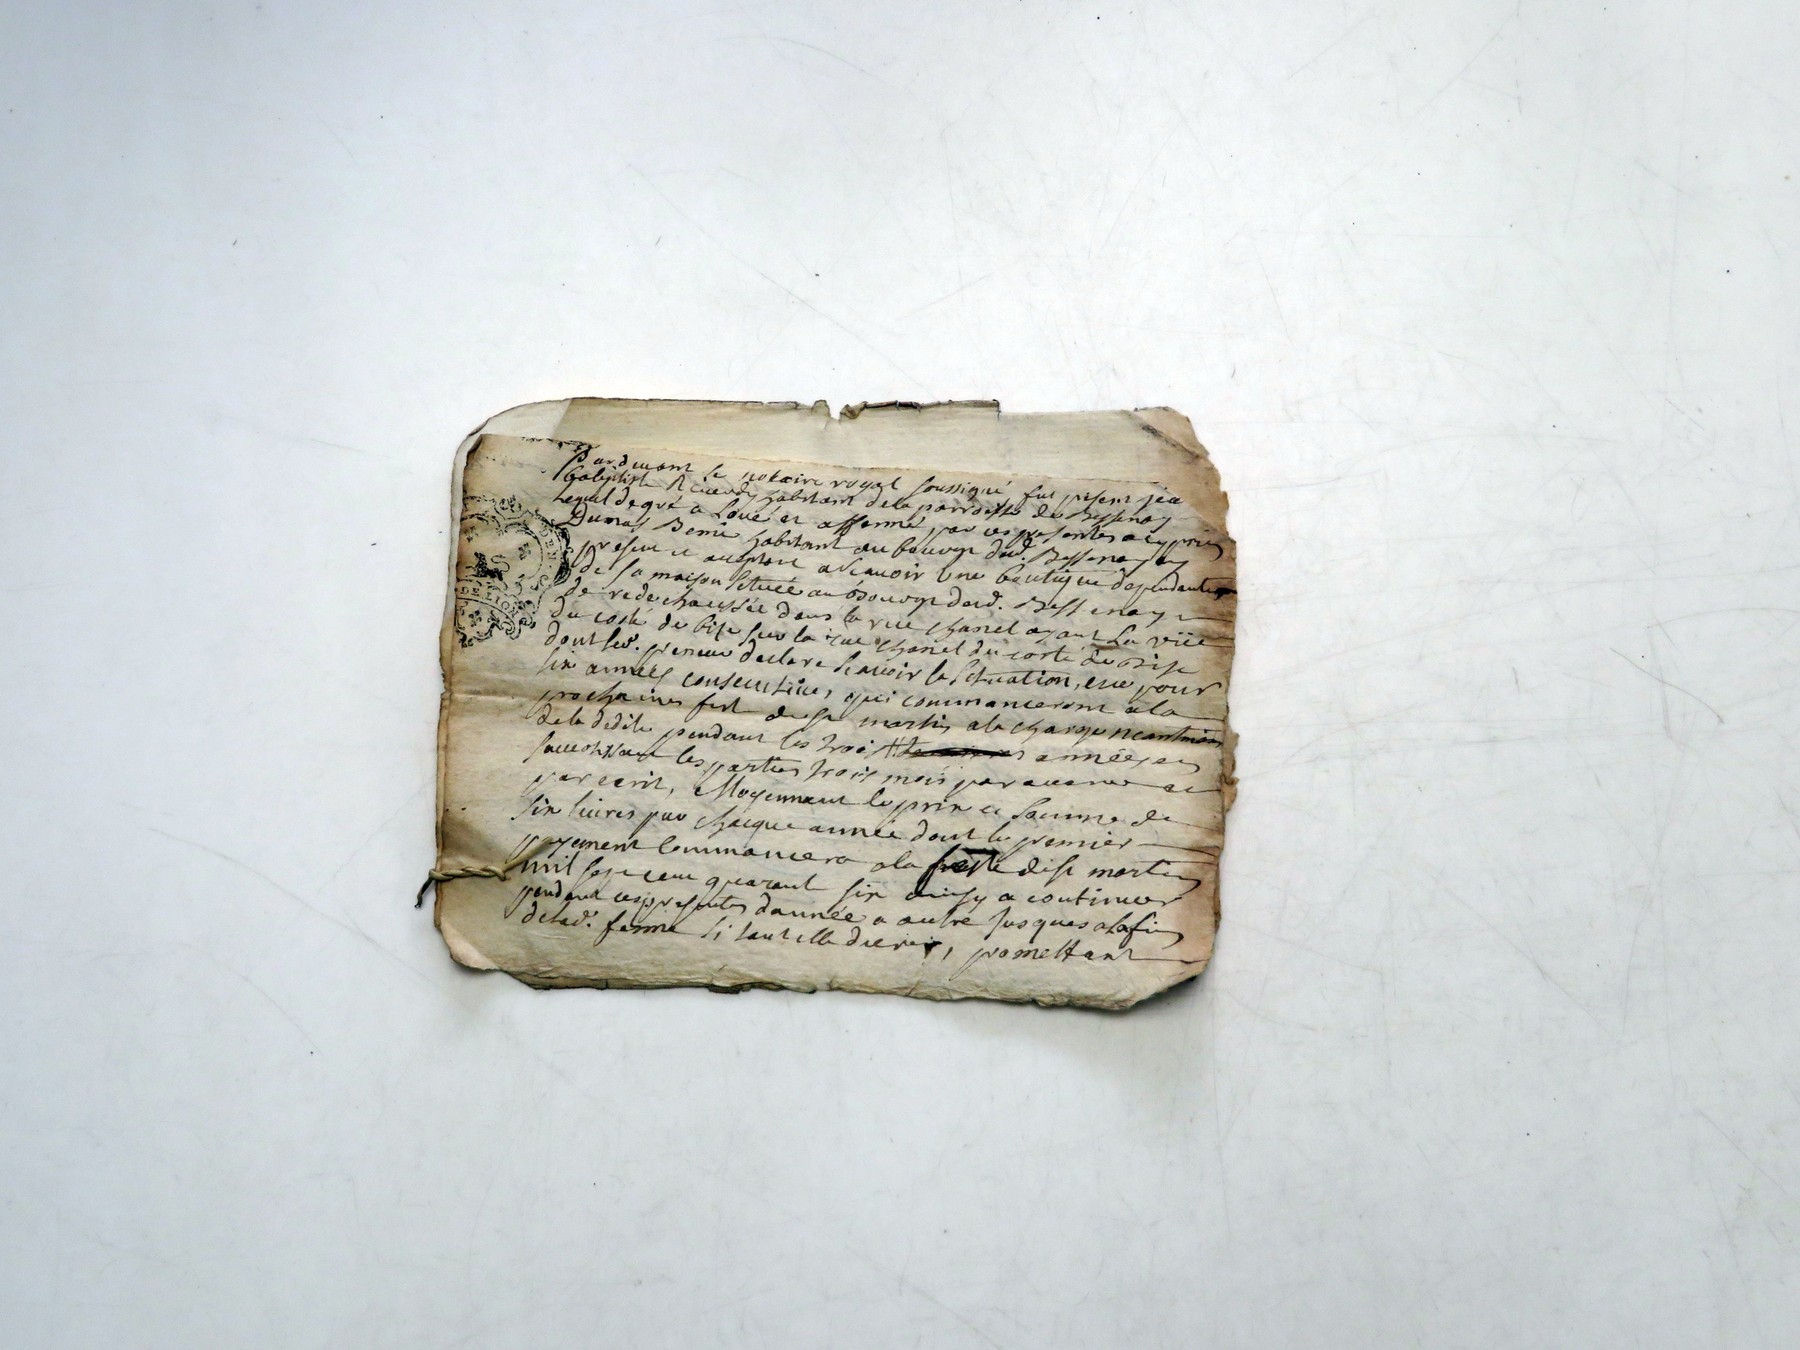 Pardevant le notaire royal soussigné fut present Jea
baptiste habitant de la parroisse de Bessenay
Lequel de gré a Loué et affermé par ces presentes a
Dumas habitant au bourg dud. Bessenay
present et acceptant ascavoir une boutique dependante
de sa maison située au bourg dud. Bessenay
de rede chaussée dans la rue chanel ayant La vüe
du costé de bise sur la rue chanel du costé de bise
dont led. preneur declare scavoir la situation, et ce pour
six années consecutives qui commanceront a la
prochaines feste de st martin a la charge neantmoins
de la dedite pendant les trois années en
les parties trois mois par avance et
par ecrit, Moyennant le prix et somme de
six livres par chacque année dont le premier
payement commancera a la feste de st martin
mil sept cent quarante six ainsy a continuer
pendant ces presentes d'année a autre jusques a la fin
de lad. ferme si tant elle dure, promettant
DE LION
GEN